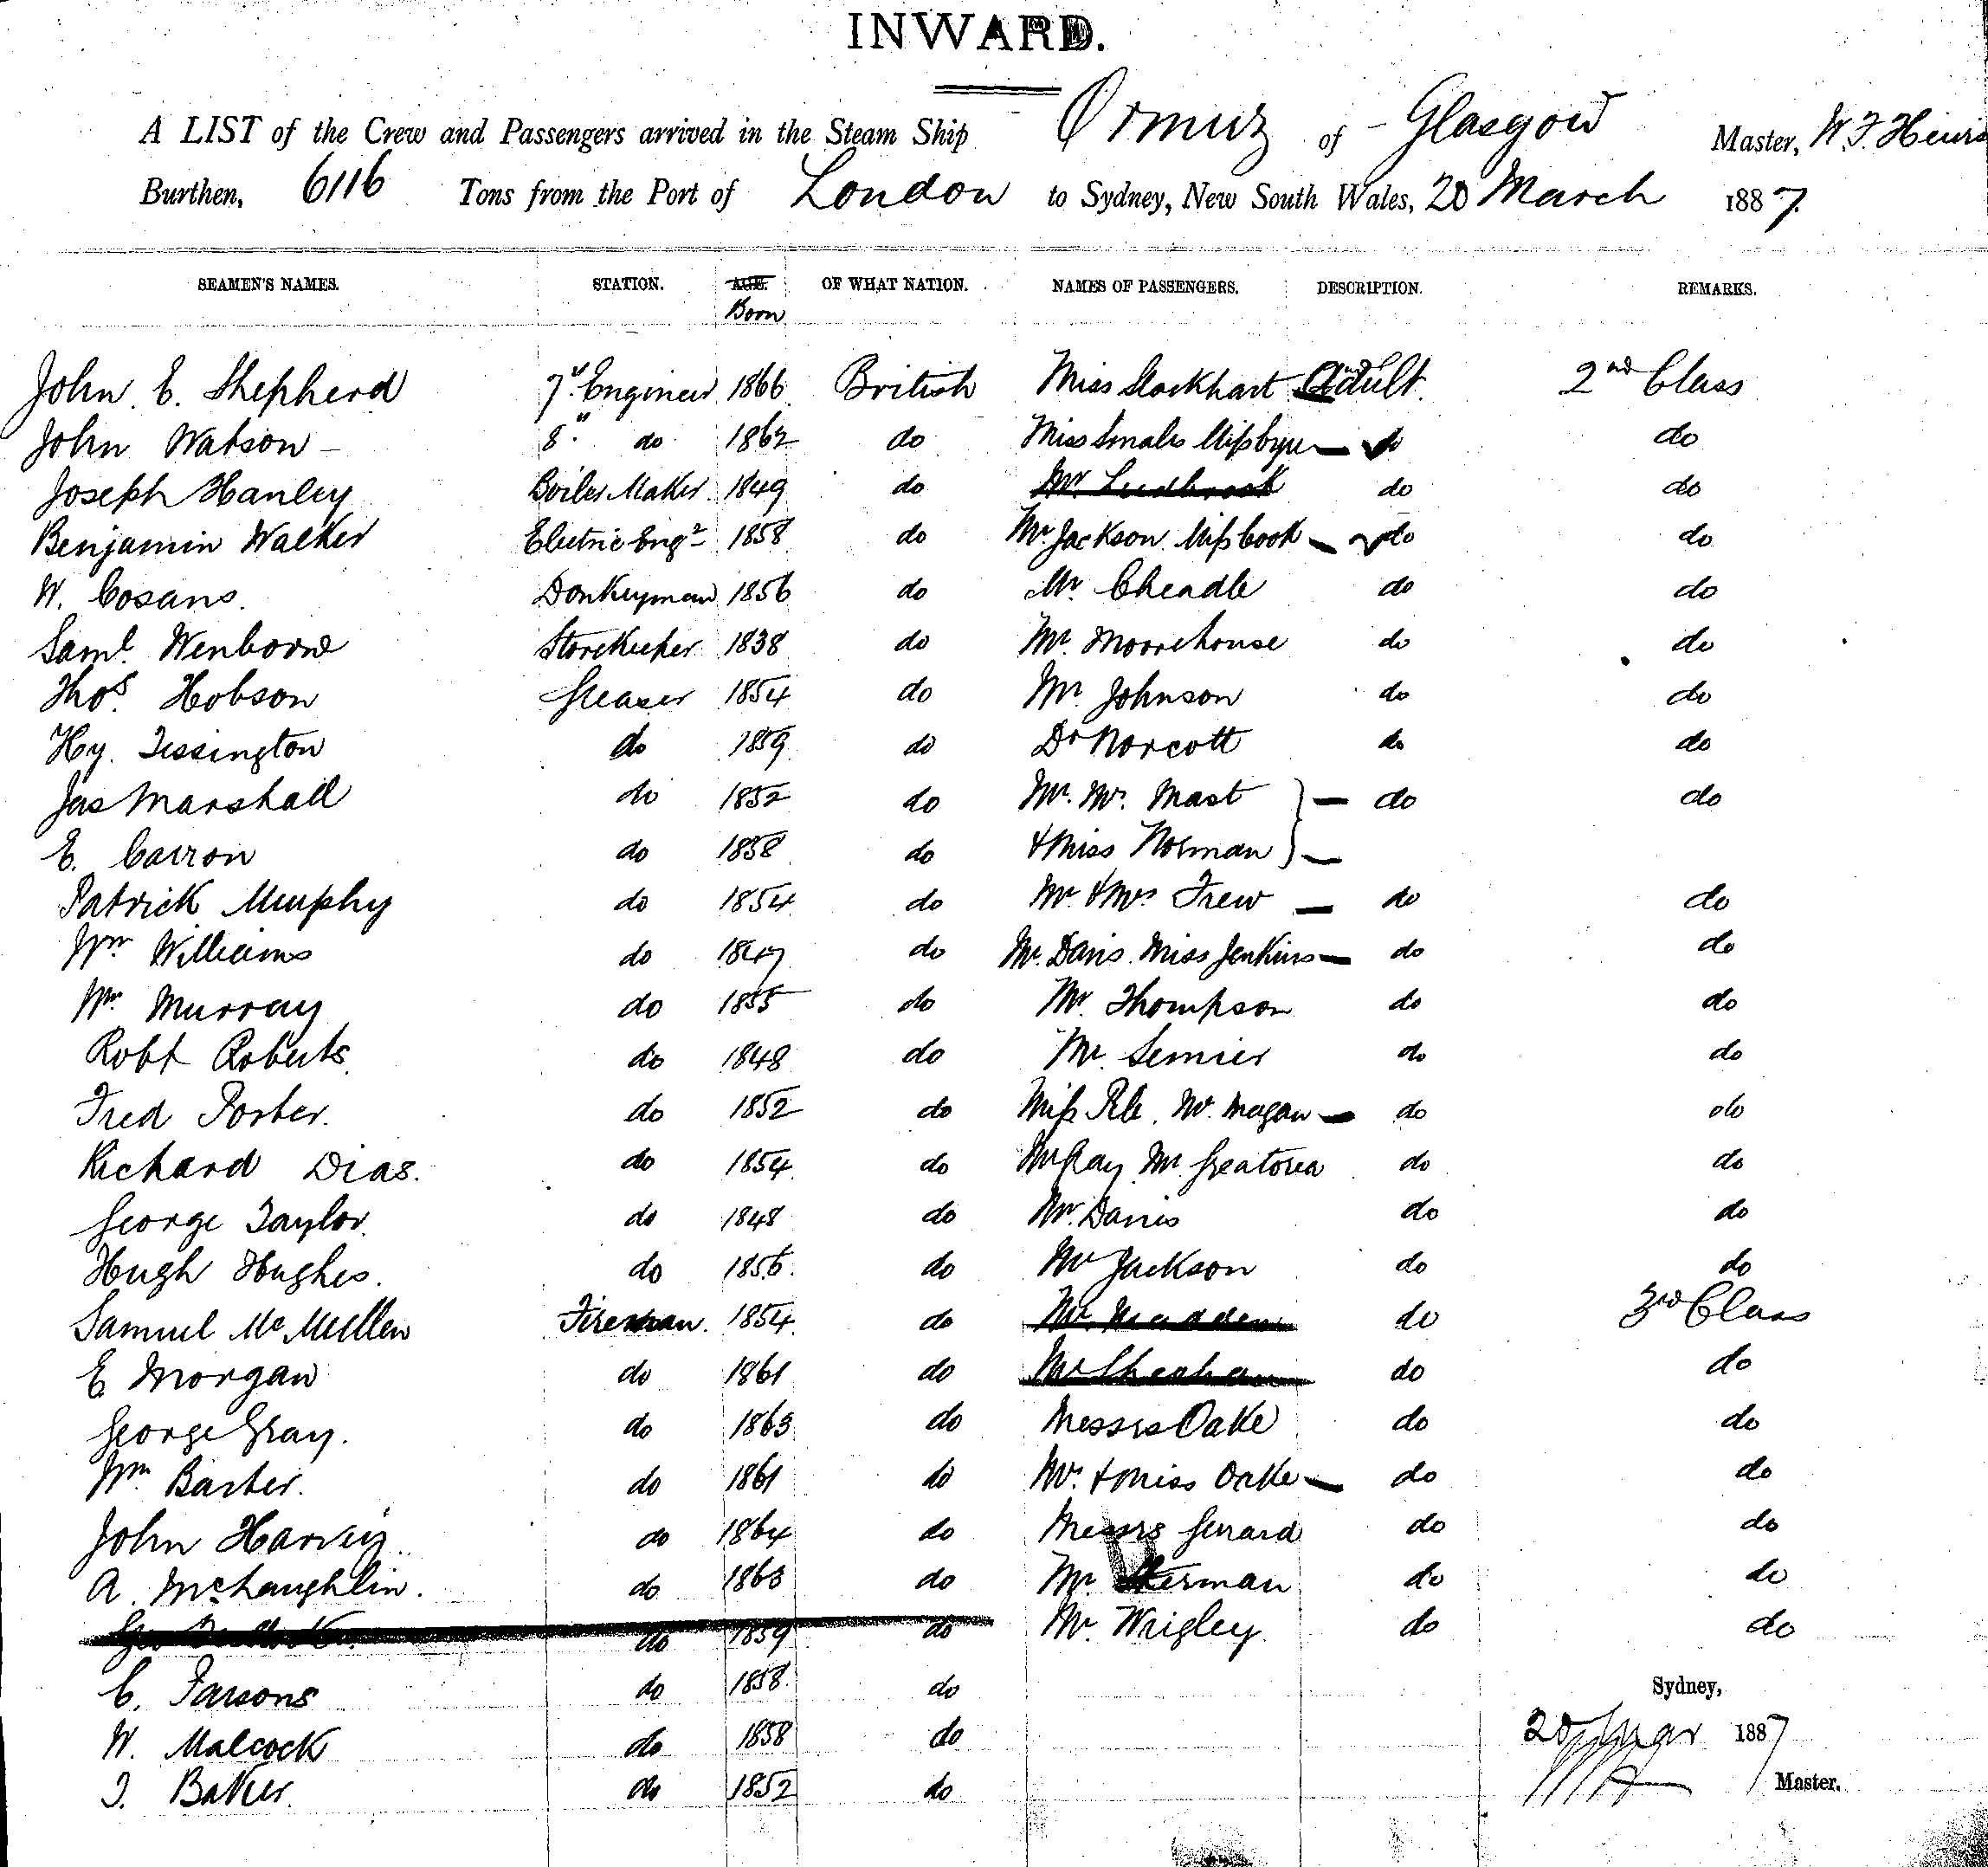 INWARD.
A LIST of the Crew and Passengers arrived in the Steam Ship Ormuz of Glasgow Master, W. F.
Burthen, 6116 Tons from the Port of London to Sydney, New South Wales, 20 March 1887.
SEAMEN'S NAMES. STATION. AGE. OF WHAT NATION. NAMES OF PASSENGERS. DESCRIPTION. REMARKS.
Born
John E. Shepherd 7" Engineer 1866 British Miss Adult. 2nd Class
John Watson 8" do 1862 do Miss do do
Joseph Hanley Boiler Maker 1849 do Mr do do
Benjamin Walker Electric Engr 1858 do Mr Jackson. Miss Cook do do
W. Cosans. Donkeyman 1856 do Mr. Cheadle do do
Saml. Wenborne Storekeeper 1838 do Mr. Moorehouse do do
Thos. Hobson Greaser 1854 do Mr Johnson do do
Hy. Tissington do 1859 do Dr Norcott do do
Jas Marshall do 1852 do Mr. Mast do do
E. Carron do 1858 do & Miss Norman
Patrick Murphy do 1854 do Mr & Mrs Frew do do
Wm Williams do 1847 do Mr. Davis. Miss Jenkins do do
Wm Murray do 1855 do Mr. Thompson do do
Robt Roberts do 1848 do Mr. do do
Fred Porter. do 1852 do Miss Mr. Magan do do
Richard Dias. do 1854 do Mr Ray Mr. do do
George Taylor. do 1848 do Mr. Davis do do
Hugh Hughes. do 1856. do Mr Jackson do do
Samuel McMullen Fireman. 1854 do Mr. Madden do 3rd Class
E. Morgan do 1861 do Mr do do
George Gray. do 1863 do Messrs Oake do do
Wm. Barber. do 1861 do Mr. & Miss Oake do do
John Harvey. do 1864 do Messrs Gerard do do
A. McLaughlin. do 1863 do Mr. do do
do 1859 do Mr. Wrigley. do do
C. Parsons do 1858. do Sydney,
W. Malcock do 1858 do 20 Mar 1887
T. Baker. do 1852 do Master.